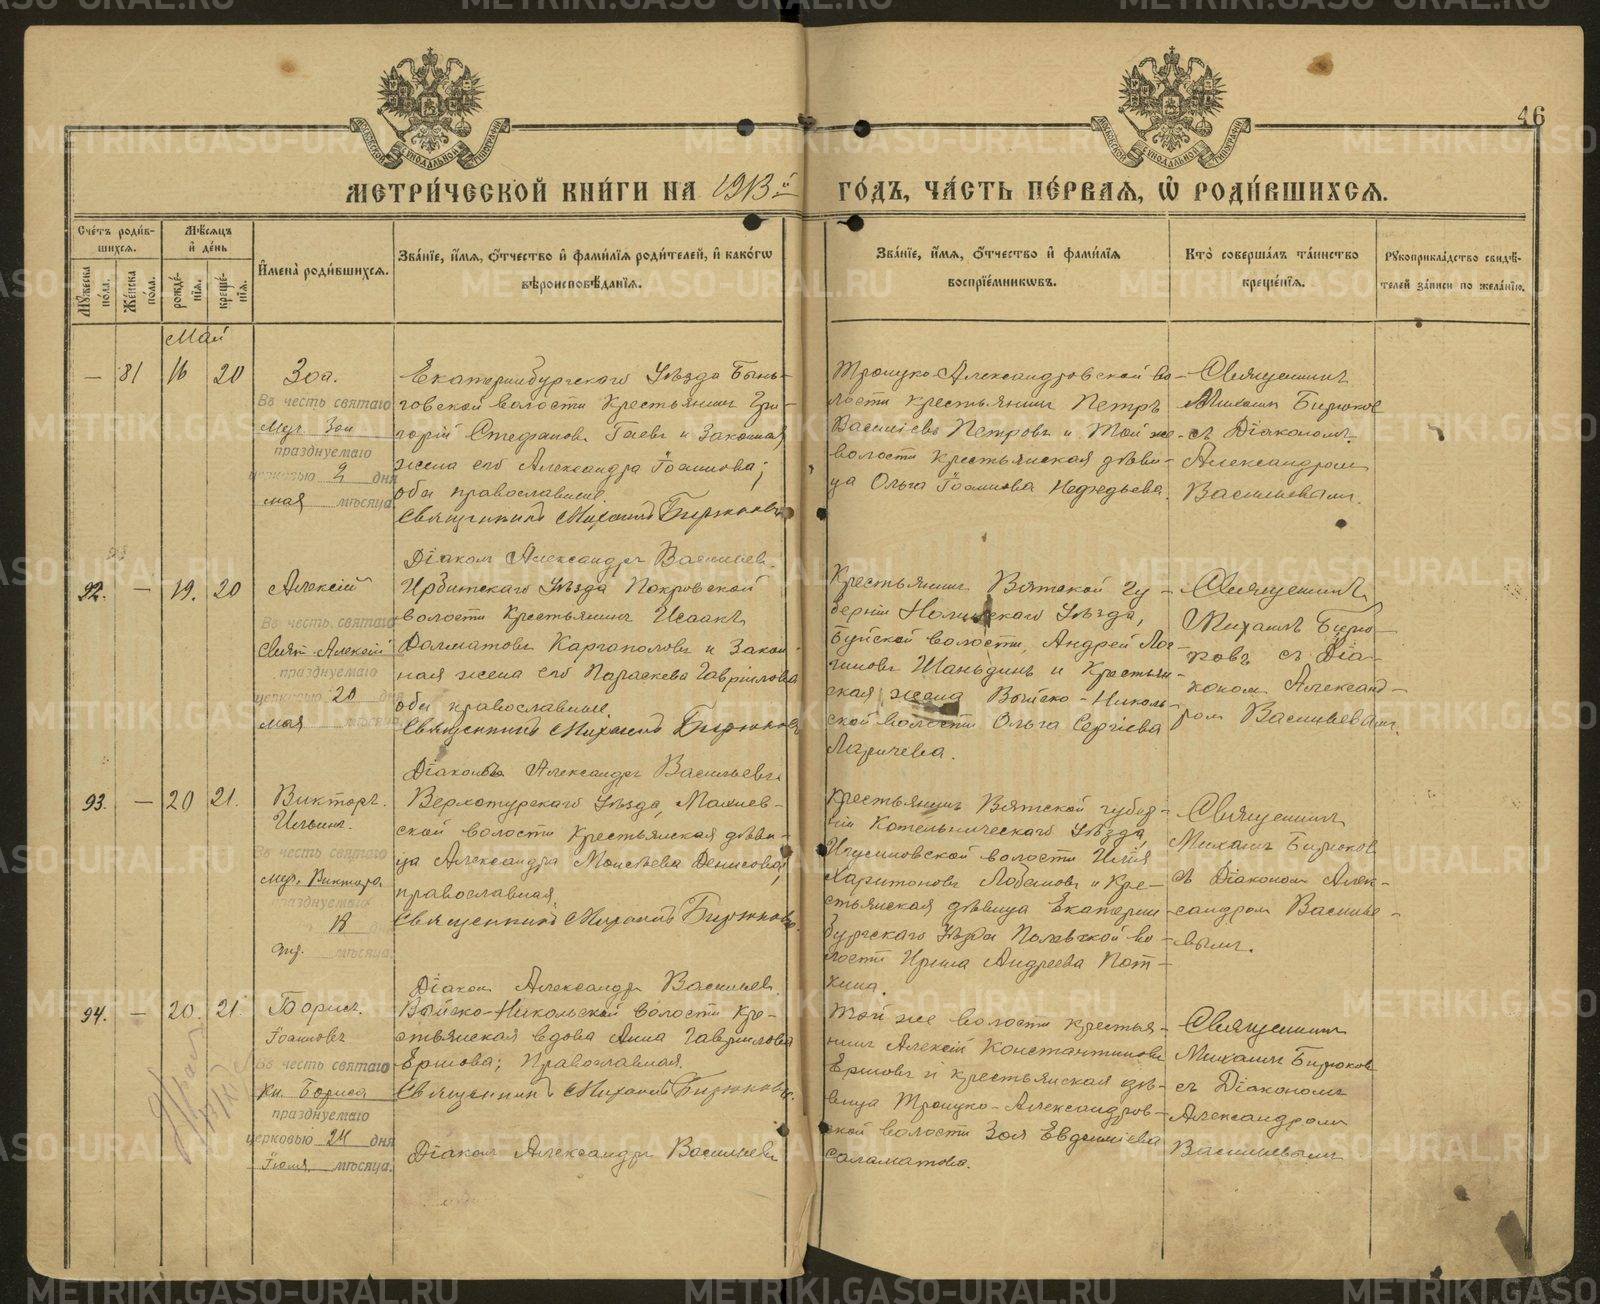 46
МЕТРИ́ЧЕСКОЙ КНИ́ГИ НА 1913й ГО́ДЪ, ЧА́СТЬ ПЕ́РВАЯ, Ѡ҆ РОДИ́ВШИХСЯ.
Сче́тъ роди́в-
шихся.
Му́жеска по́ла.
Же́нска по́ла.
Мѣ́сяцъ и҆ де́нь
рожде́-нїя.
креще́-нїя.
И҆мена̀ роди́вшихся.
Зва́нїе, и҆́мя, ѻ҆́тчество и҆ фами́лїя роди́телей, и҆ како́гѡ
вѣроисповѣ́данїя.
Зва́нїе, и҆́мя, ѻ҆́тчество и҆ фами́лїя
воспрїе́мникѡвъ.
Кто̀ соверша́лъ та́инство
креще́нїя.
Рукоприкла́дство свидѣ́-
телей за́писи по жела́нїю.
Май
— 81 16 20
Зоа.
Въ честь святаго
муч. Зои
празднуемаго
церковью 2 дня
мая мѣсяца.
Екатеринбургскаго Уѣзда Бынь-
говской волости крестьянин Гри-
горій Стефанов Гаевъ и законная
жена его Александра Іоаннова;
оба православные.
Священникъ Михаилъ Бирюковъ
Діакон Александръ Васильев.
Троицко-Александровской во-
лости крестьянин Петръ
Василіевъ Петровъ и той же
волости крестьянская дѣви-
ца Ольга Іоаннова Недюдьева.
Священникъ
Михаил Бирюков
съ Діакономъ
Александром
Васильевым.
92. — 19. 20
Алексій
Въ честь святаго
Свят. Алексій
празднуемаго
церковью 20 дня
мая мѣсяца
Ирбитскаго Уѣзда Покровской
волости крестьянинъ Исаакъ
Далматовъ Каргаполовъ и закон-
ная жена его Параскева Гавриилова
оба православные
Священникъ Михаилъ Бирюковъ
Діаконъ Александръ Васильевъ
Крестьянин Вятской гу-
берніи Нолинскаго Уѣзда,
Буйской волости, Андрей Лог-
гиновъ Шаньдинъ и крестьян-
ская жена Выйско-Николь-
ской волости Ольга Сергіева
Ларичева.
Священникъ
Михаилъ Бирю-
ковъ съ Діа-
коном Александ-
ром Васильевым.
93. — 20 21.
Викторъ.
Ильинъ.
Въ честь святаго
муч. Виктора
празднуемаго
18 дня
апр. мѣсяца.
Верхотурскаго Уѣзда, Махнев-
ской волости крестьянская дѣви-
ца Александра Моисѣева Денисова,
православная.
Священникъ Михаилъ Бирюковъ.
Діакон Александр Васильев.
Крестьянинъ Вятской губер-
ніи Котельническаго Уѣзда,
волости Илія
Харитоновъ Лобановъ и кре-
стьянская дѣвица Екатерин-
бургскаго Уѣзда во-
лости Ирина Андреева Пот-
кина.
Священникъ
Михаил Бирюков
съ Діаконом Алек-
сандром Василье-
вым.
94. — 20. 21.
Борисъ.
Іоанновъ
Въ честь святаго
кн. Бориса
празднуемаго
церковью 24 дня
Іюля мѣсяца.
Выйско-Никольской волости кре-
стьянская вдова Анна Гавриилова
Ершова; Православная.
Священникъ Михаилъ Бирюковъ.
Діакон Александръ Васильевъ
Той же волости крестья-
нинъ Алексій Константиновъ
Ершовъ и крестьянская дѣ-
вица Троицко-Александров-
ской волости Зоя Евдокиміева
Саламатова.
Священникъ
Михаилъ Бирюков
съ Діакономъ
Александромъ
Васильевымъ